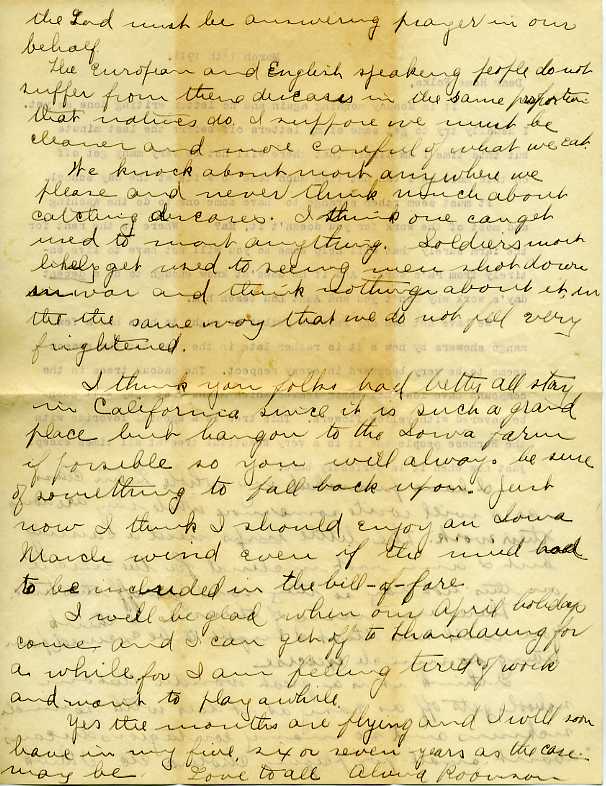 the Lord must be answering prayer in our
behalf.
The European and English speaking people do not
suffer from these diseases in the same proportion
that natives do. I suppose we must be
cleaner and more careful of what we eat.
We knock about most anywhere we
please and never think much about
catching diseases. I think one can get
used to most anything. Soldiers most
likely get used to seeing men shot down
in war and think nothing about it, in
the the same way that we do not feel very
frightened.
I think you folks had better all stay
in California since it is such a grand
place but hang on to the Iowa farm
if possible so you will always be sure
of something to fall back upon. Just
now I think I should enjoy an Iowa
March wind even if the mud had
to be included in the bill-of-fare
I will be glad when our April holidays
come and I can get off to Thandaung for
a while for I am feeling tired of work
and want to play awhile.
Yes the months are flying and I will soon
have in my five, six or seven years as the case
may be. Love to all